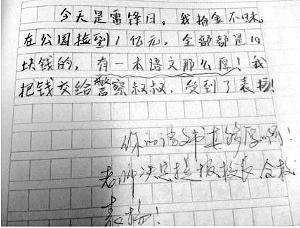 今天是雷锋日,我拾金不昧,
在公园捡到1亿元,全部都是10
块钱的,有一本语文那么厚!我
把钱交给警察叔叔,受到了表扬!
你的语文书真厚啊!
老师决定提报校长全校
表扬!